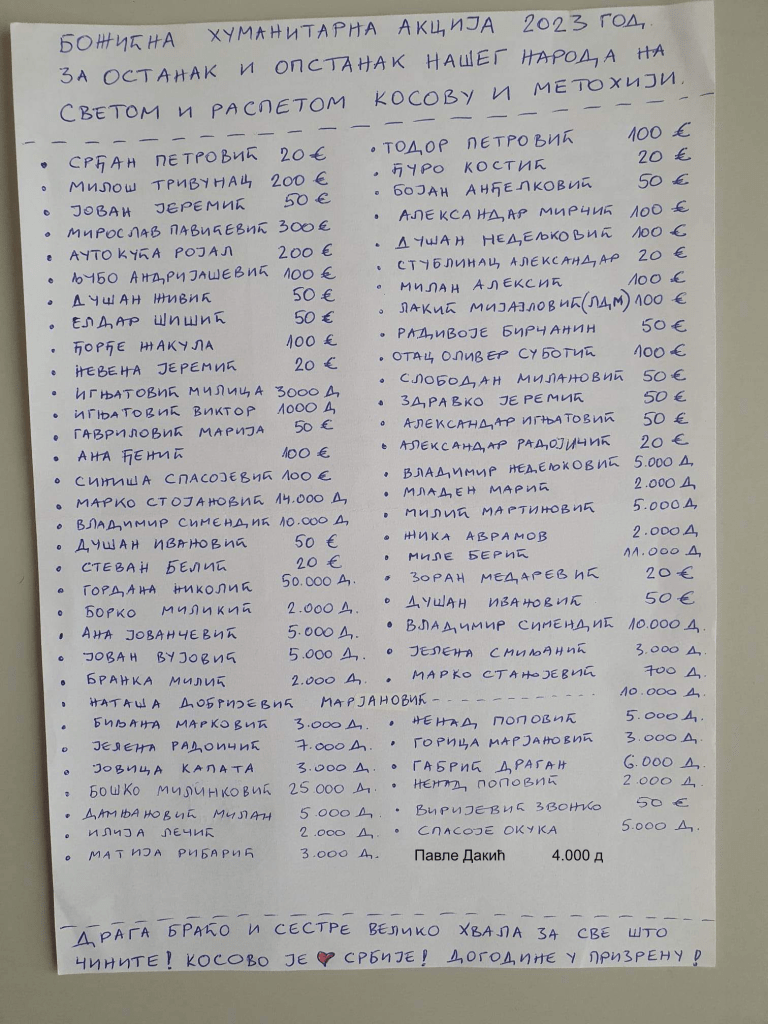 БОЖИЋНА ХУМАНИТАРНА АКЦИЈА 2023 ГОД.
ЗА ОСТАНАК И ОПСТАНАК НАШЕГ НАРОДА НА
СВЕТОМ И РАСПЕТОМ КОСОВУ И МЕТОХИЈИ.
• СРЂАН ПЕТРОВИЋ 20 €
• МИЛОШ ТРИВУНАЦ 200 €
• ЈОВАН ЈЕРЕМИЋ 50 €
• МИРОСЛАВ ПАВИЋЕВИЋ 300 €
• АУТОКУЋА РОЈАЛ 200 €
• ЉУБО АНДРИЈАШЕВИЋ 100 €
• ДУШАН ЖИВИЋ 50 €
• ЕЛДАР ШИШИЋ 50 €
• ЂОРЂЕ ЖАКУЛА 100 €
• НЕВЕНА ЈЕРЕМИЋ 20 €
• ИГЊАТОВИЋ МИЛИЦА 3000 Д
• ИГЊАТОВИЋ ВИКТОР 1000 Д
• ГАВРИЛОВИЋ МАРИЈА 50 €
• АНА ЂЕНИЋ 100 €
• СИНИША СПАСОЈЕВИЋ 100 €
• МАРКО СТОЈАНОВИЋ 14.000 Д
• ВЛАДИМИР СИМЕНДИЋ 10.000 Д
• ДУШАН ИВАНОВИЋ 50 €
• СТЕВАН БЕЛИЋ 20 €
• ГОРДАНА НИКОЛИЋ 50.000 Д.
• БОРКО МИЛИКИЋ 2.000 Д.
• АНА ЈОВАНЧЕВИЋ 5.000 Д.
• ЈОВАН ВУЈОВИЋ 5.000 Д.
• БРАНКА МИЛИЋ 2.000 Д.
• НАТАША ДОБРИЈЕВИЋ МАРЈАНОВИЋ - - - - - - - - - - - 10.000 Д.
• БИЉАНА МАРКОВИЋ 3.000 Д.
• ЈЕЛЕНА РАДОИЧИЋ 7.000 Д.
• ЈОВИЦА КАПАТА 3.000 Д.
• БОШКО МИЛИНКОВИЋ 25 000 Д.
• ДАМЊАНОВИЋ МИЛАН 5.000 Д.
• ИЛИЈА ЛЕЧИЋ 2.000 Д.
• МАТИЈА РИБАРИЋ 3.000 Д.
• ТОДОР ПЕТРОВИЋ 100 €
• ЂУРО КОСТИЋ 20 €
• БОЈАН АНЂЕЛКОВИЋ 50 €
• АЛЕКСАНДАР МИРЧИЋ 100 €
• ДУШАН НЕДЕЉКОВИЋ 100 €
• СТУБЛИНАЦ АЛЕКСАНДАР 20 €
• МИЛАН АЛЕКСИЋ 100 €
• ЛАКИЋ МИЈАЈЛОВИЋ (ЛДМ) 100 €
• РАДИВОЈЕ БИРЧАНИН 50 €
• ОТАЦ ОЛИВЕР СУБОТИЋ 100 €
• СЛОБОДАН МИЛАНОВИЋ 50 €
• ЗДРАВКО ЈЕРЕМИЋ 50 €
• АЛЕКСАНДАР ИГЊАТОВИЋ 50 €
• АЛЕКСАНДАР РАДОЈИЧИЋ 20 €
• ВЛАДИМИР НЕДЕЉКОВИЋ 5.000 Д
• МЛАДЕН МАРИЋ 2.000 Д.
• МИЛИЋ МАРТИНОВИЋ 5.000 Д.
• ЖИКА АВРАМОВ 2.000 Д
• МИЛЕ БЕРИЋ 11.000 Д
• ЗОРАН МЕДАРЕВИЋ 20 €
• ДУШАН ИВАНОВИЋ 50 €
• ВЛАДИМИР СИМЕНДИЋ 10.000 Д.
• ЈЕЛЕНА СМИЉАНИЋ 3.000 Д.
• МАРКО СТАНОЈЕВИЋ 700 Д.
• НЕНАД ПОПОВИЋ 5.000 Д.
• ГОРИЦА МАРЈАНОВИЋ 3.000 Д.
• ГАБРИЋ ДРАГАН 6.000 Д.
• НЕНАД ПОПОВИЋ 2.000 Д.
• ВИРИЈЕВИЋ ЗВОНКО 50 €
• СПАСОЈЕ ОКУКА 5.000 Д.
Павле Дакић 4.000 д
ДРАГА БРАЋО И СЕСТРЕ ВЕЛИКО ХВАЛА ЗА СВЕ ШТО
ЧИНИТЕ! КОСОВО ЈЕ ❤ СРБИЈЕ! ДОГОДИНЕ У ПРИЗРЕНУ!